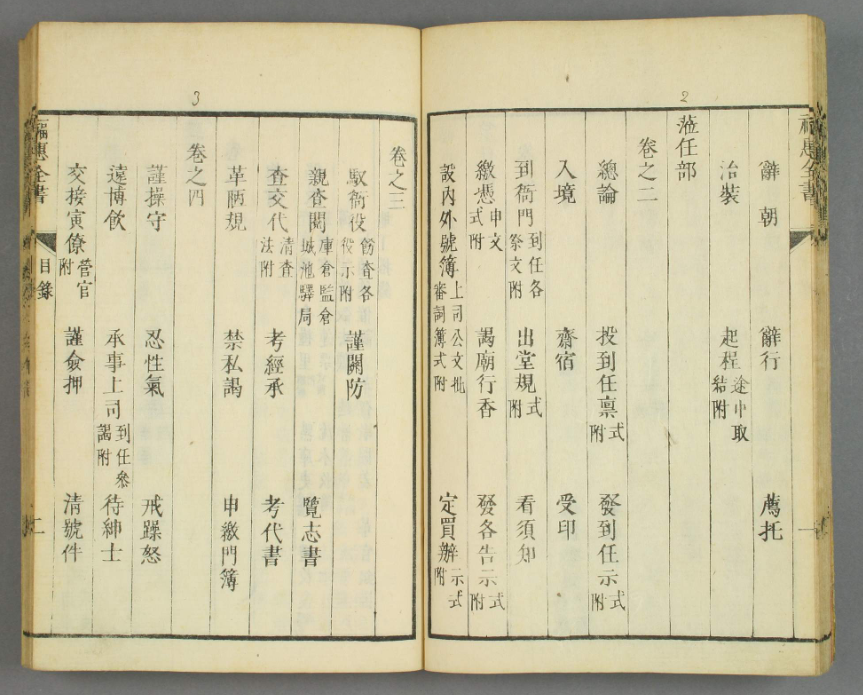 2
福惠全書
一
辭朝 辭行 薦托
治裝 起程途中取結附
蒞任部
卷之二
總論 投到任稟式附 發到任示式附
入境 齋宿 受印
到衙門到任各祭文附 出堂規式附 看須知
繳憑申文式附 謁廟行香 發各告示式附
設內外號簿上司公文批審詞簿式附 定買辦示式附
3
卷之三
馭衙役飭查各役示附 謹關防
親查閱庫倉監倉城池驛局 覽志書
查交代清查法附 考經承 考代書
革陋規 禁私謁 申繳門簿
卷之四
謹操守 忍性氣 戒躁怒
遠博飲 承事上司到任參謁附 待紳士
交接寅僚營官附 謹僉押 清號件
福惠全書
目錄
二